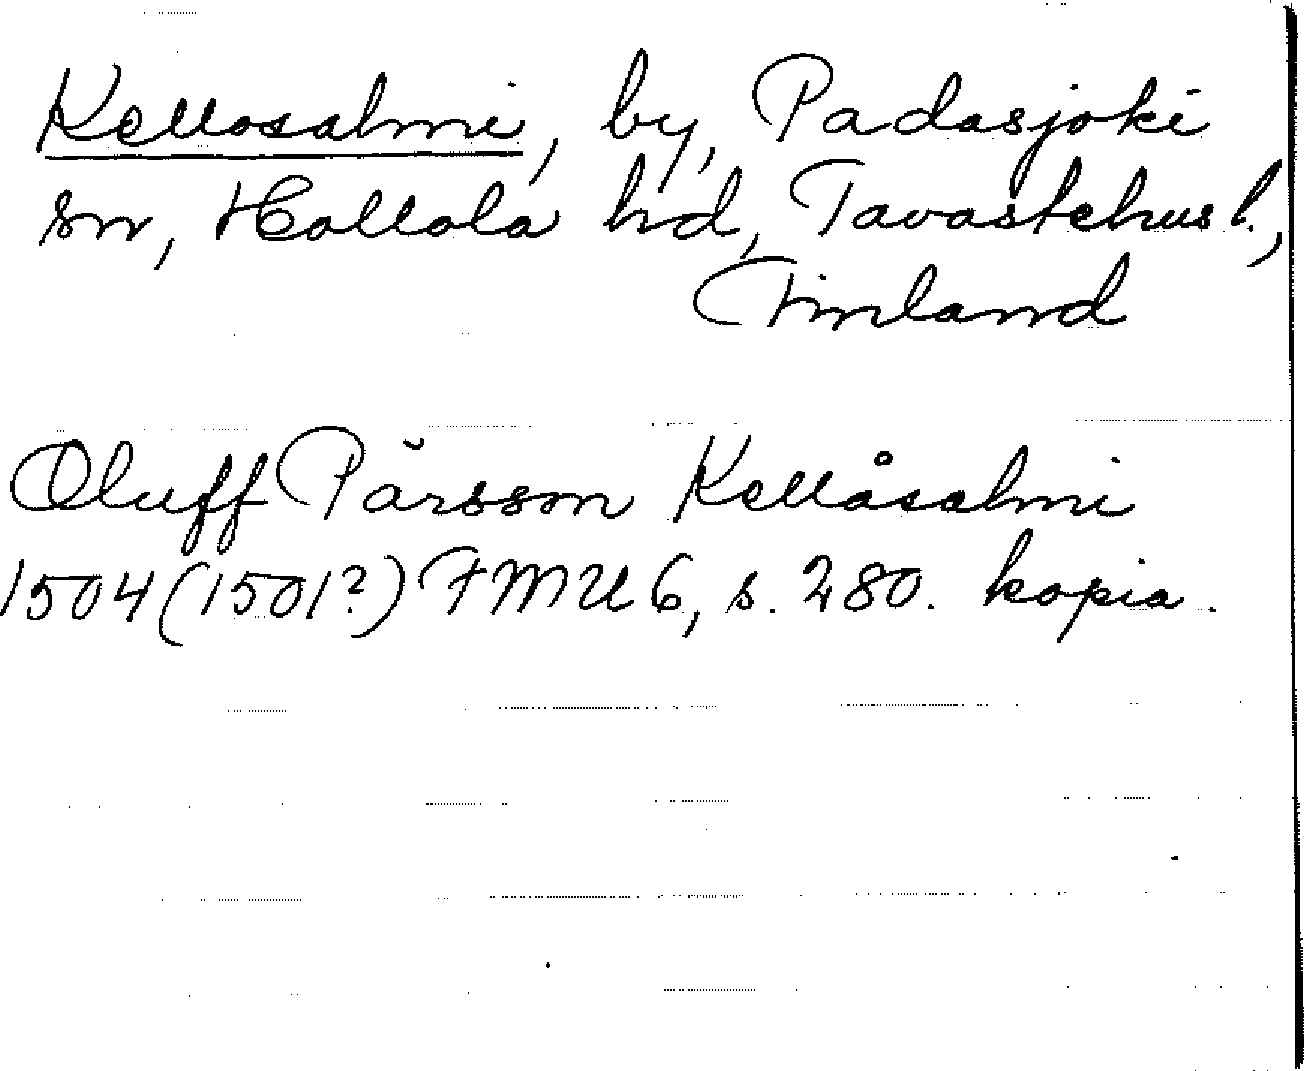 Kellosalmi, by, Padasjoki
sn, Hollola hd, Tavastehus l.,
Finland
Oluff Pärsson Kellåsalmi
1504 (1501?) FMU 6, s. 280. kopia.